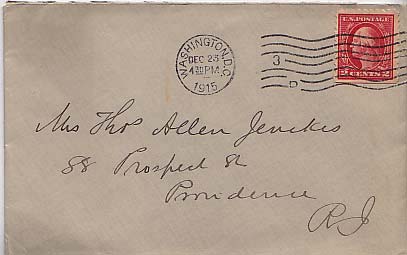 U.S. POSTAGE
WASHINGTON, D.C.
DEC 23
4 30 PM
1915
3
D
2 CENTS 2
Mrs Thos Allen Jenckes
88 Prospect St
Providence
R I